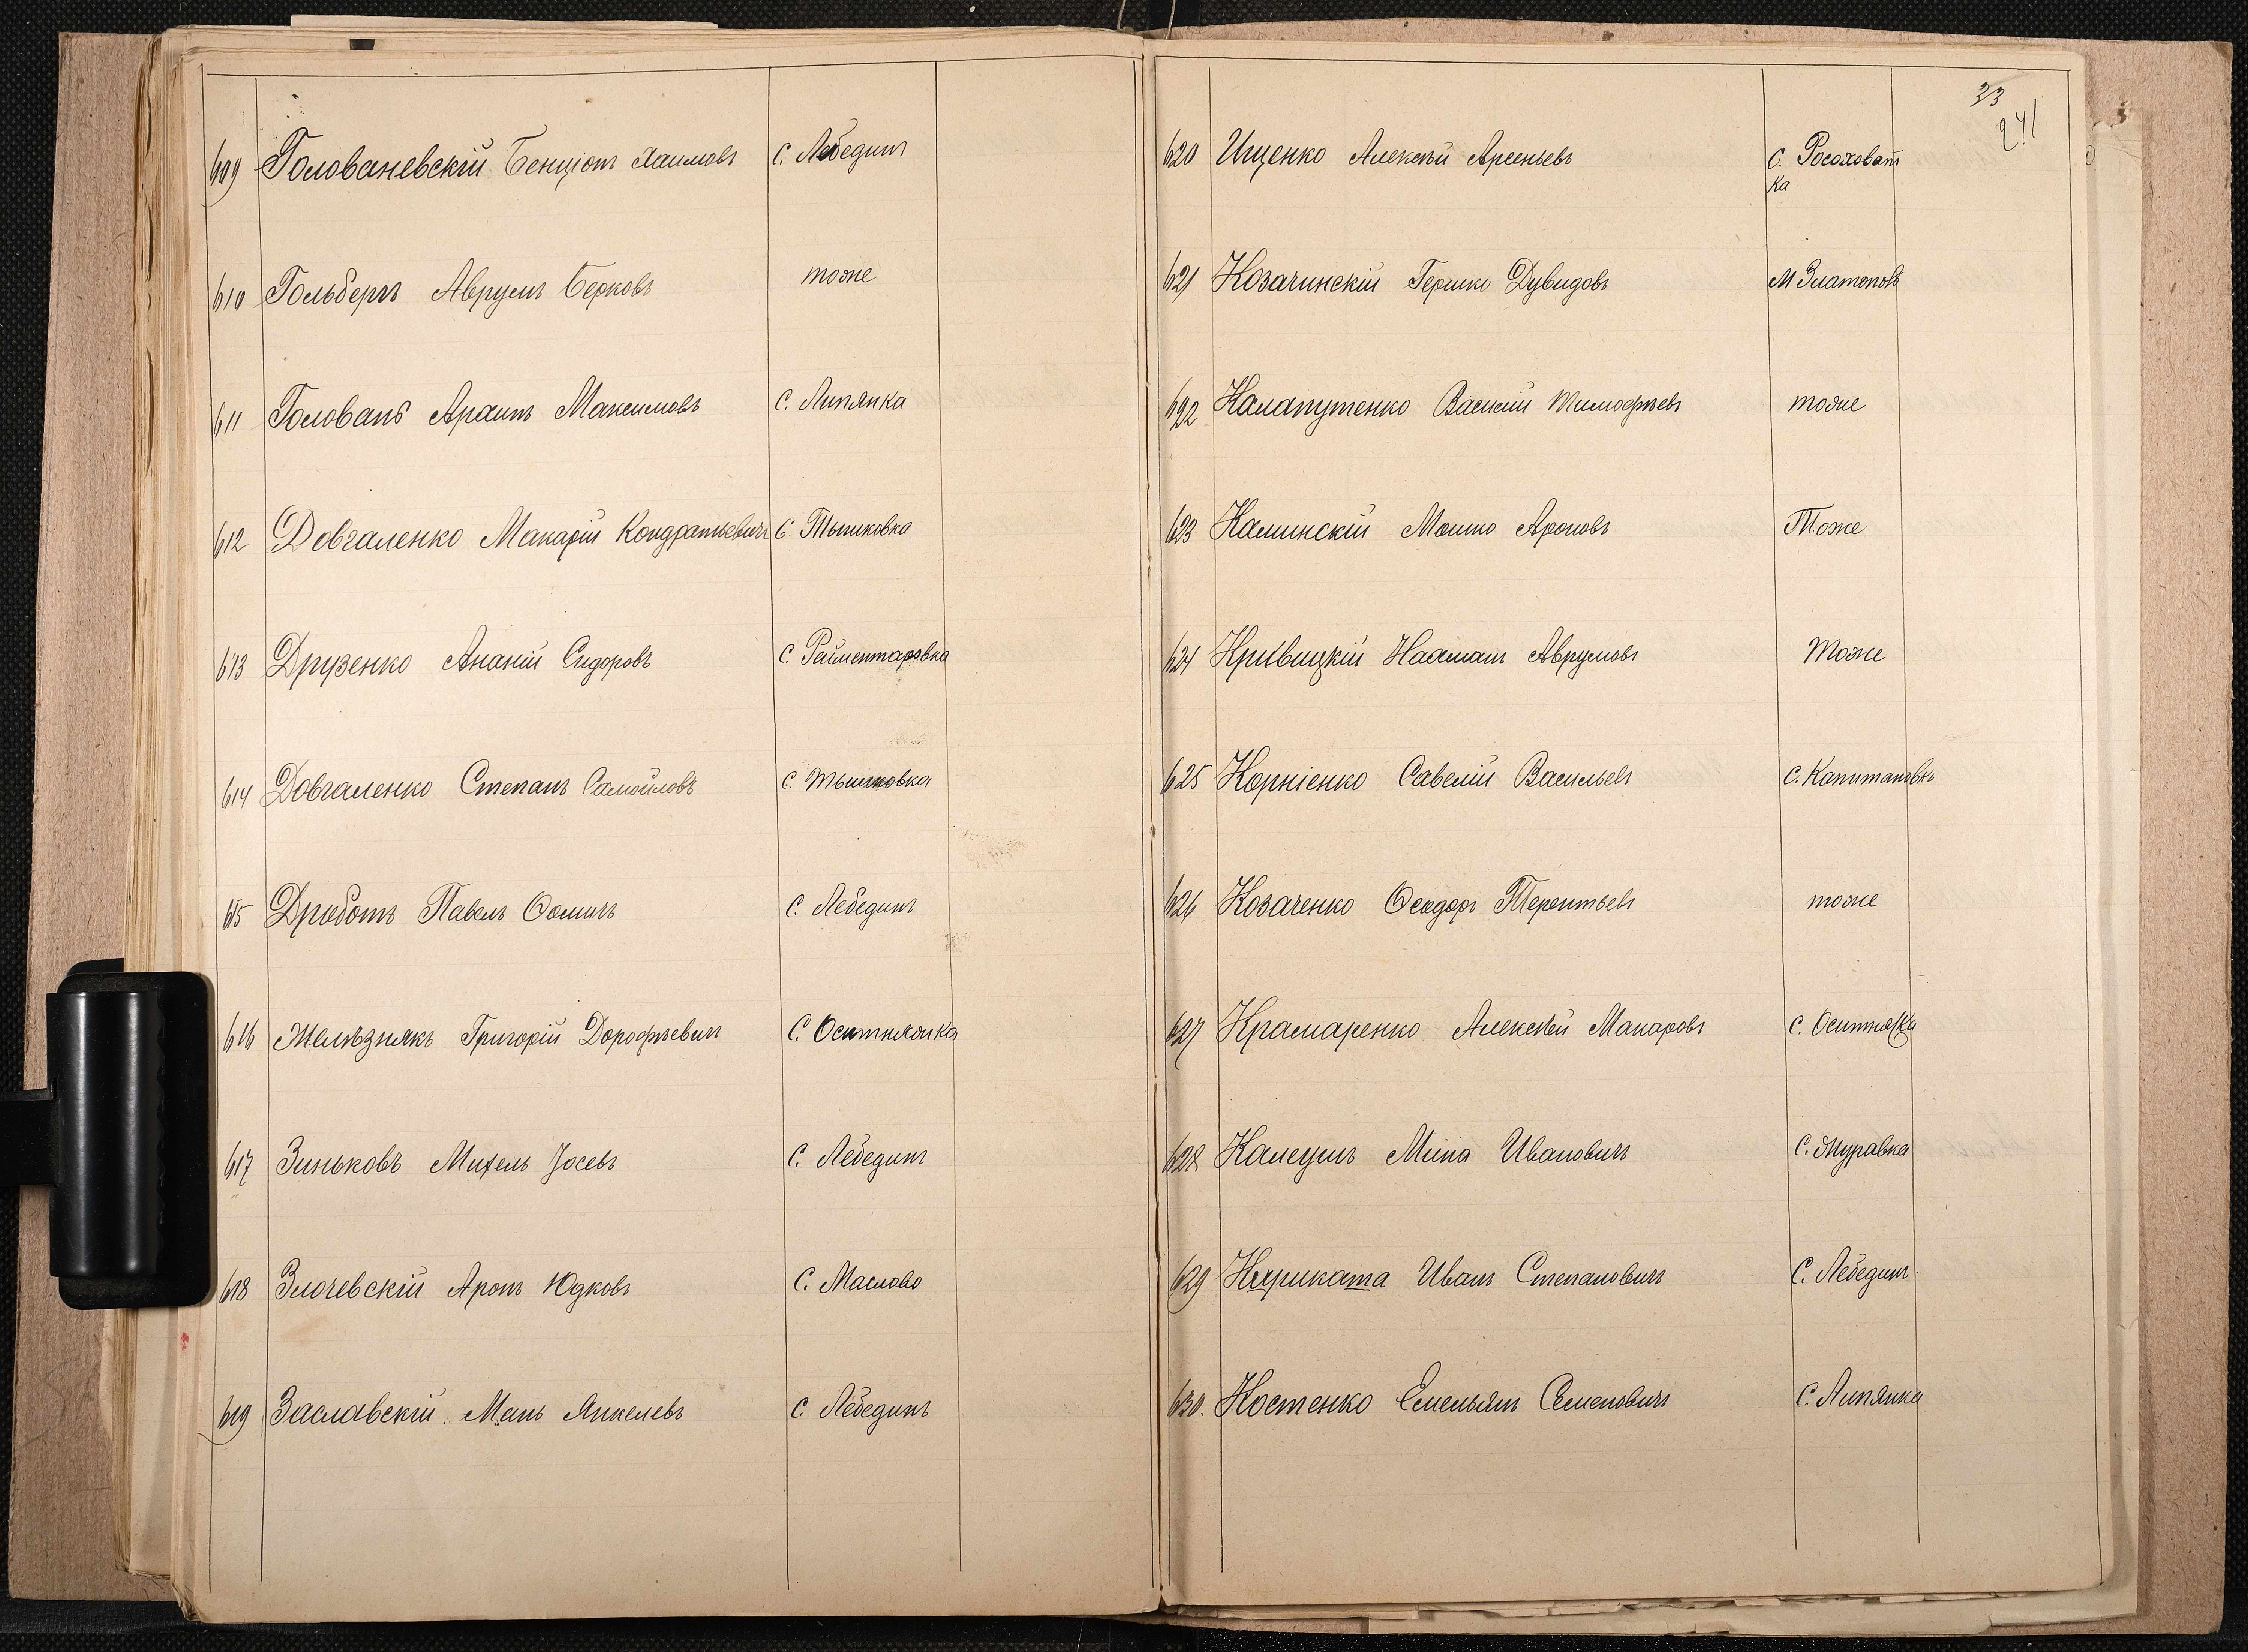 609 Голованевскій Бенціонъ Хаимовъ С. Лебединъ
610 Гольбергъ Аврумъ Берковъ тоже
611 Голованъ Архипъ Максимовъ С. Липянка
612 Довгаленко Макарій Кондратьевичъ С Тышковка
613 Друзенко Ананій Сидоровъ С. Рейментаровка
614 Довгаленко Степанъ Самойловъ С Тышковка
615 Дроботъ Павелъ Ѳомичъ С. Лебединъ
616 Желѣзнякъ Григорій Дорофѣевичъ С. Оситняжка
617 Зиньковъ Михель Іосевъ С. Лебединъ
618 Злочевскій Аронъ Юдковъ С. Маслово
619 Заславскій Мань Янкелевъ С Лебединъ
33
241
620 Ищенко Алексѣй Арсеньевъ С. Росоховат
ка
621 Козачинскій Гершко Дувидовъ М Златополь
622 Калапутенко Василій Тимофѣевъ тоже
623 Калинскій Мошко Ароновъ Тоже
624 Кривицкій Нахманъ Аврумовъ Тоже
625 Корніенко Савелій Васильевъ С. Капитановкъ
626 Козаченко Ѳеодоръ Терентьевъ тоже
627 Крамаренко Алексѣй Макаровъ С. Оситняжка
628 Миna Ивановичъ С. Журавка
629 Иванъ Степановичъ С. Лебединъ
630. Костенко Емельянъ Семеновичъ С. Липянка